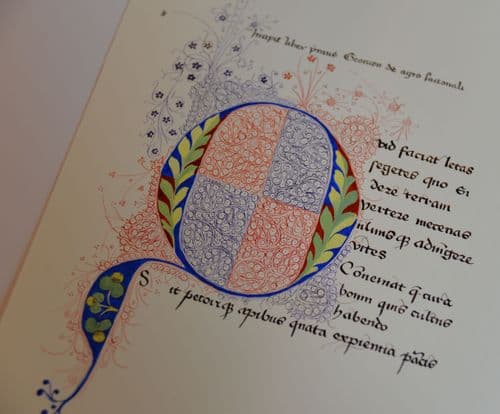 Incipit liber pımus Georicon de agro
Quid faciat letas
segetes quo si
dere terram
vertere mecenas
ulmis qꝫ adiūgere
vites
Conveniat q̄ cura
boum quis cultus
habendo
Sit pecori qꝫ apibus quāta expientia